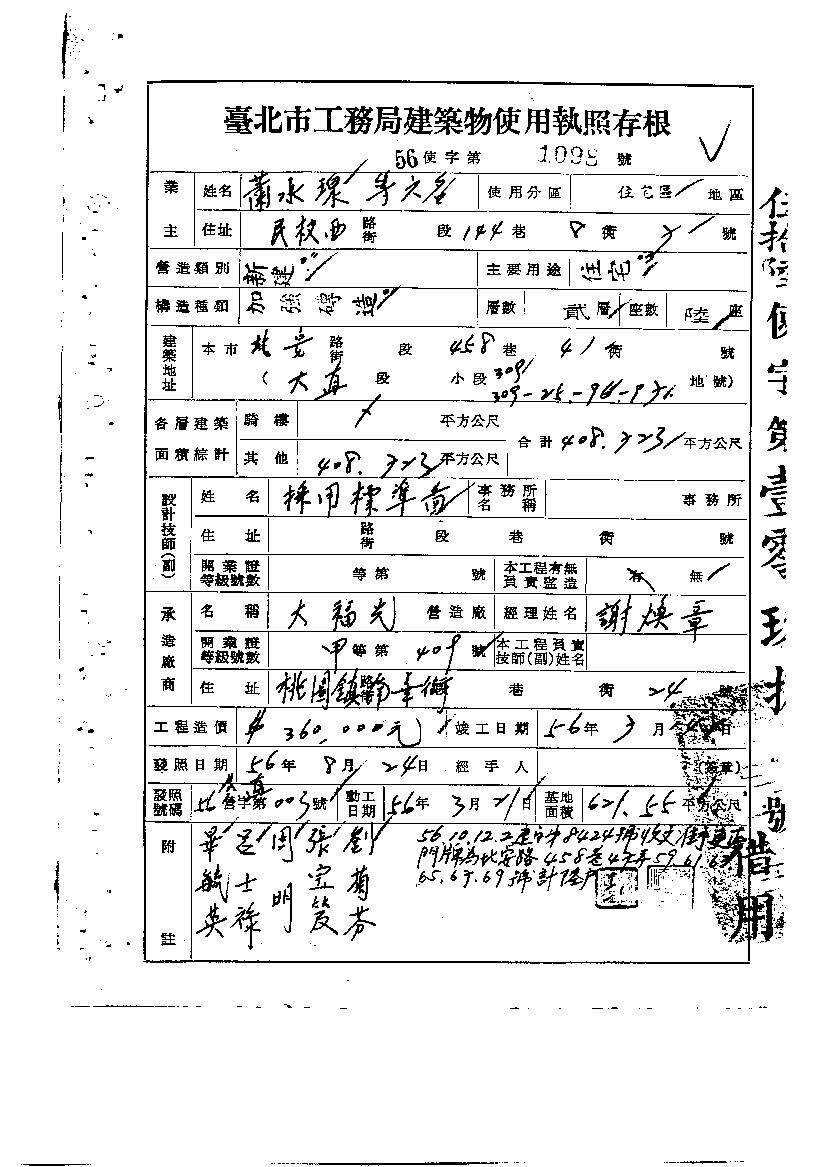 臺北市工務局建築物使用執照存根
56使字第 1098 號
業主 姓名 蕭水 等六名 使用分區 住宅區 地區
住址 民權西 路街 段 144 巷 8 衖 號
營造類別 新建 主要用途 住宅
構造種類 加強磚造 層數 貳層 座數 陸座
建築地址 本市 北安 路街 段 458 巷 41 衖 號
(大直 段 小段 309 309-25-96-931 地號)
各層建築面積綜計 騎樓 平方公尺 合計 408.323 平方公尺
其他 408.323 平方公尺
設計技師(副) 姓名 採用標準圖 事務所名稱 事務所
住址 路街 段 巷 衖 號
開業證等級號數 等第 號 本工程有無負責監造 有 無
承造廠商 名稱 大福光 營造廠 經理姓名 謝煥章
開業證等級號數 甲等第 409 號 本工程負責技師(副)姓名
住址 桃園鎮 路街 巷 衖 24 號
工程造價 $360,000元 竣工日期 56年 月 日
發照日期 56年 8月 24日 經手人 (簽章)
發照號碼 56 營字第 003 號 動工日期 56年 3月 21日 基地面積 621.55 平方公尺
附註 畢毓英 呂士祿 周明 張 劉菊芬
56.10.12.
門牌為北安路458巷41弄59.61.63
65.67.69號計陸戶
伍拾陸使字第壹零玖捌號
借用